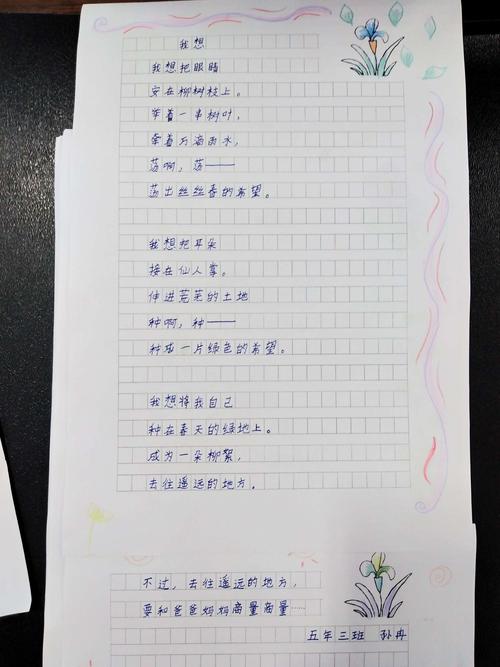 我想
我想把眼睛
安在柳树枝上。
牵着一串树叶，
牵着万滴雨水，
荡啊，荡——
荡出丝丝春的希望。
我想把耳朵
接在仙人掌。
伸进荒芜的土地
种啊，种——
种成一片绿色的希望。
我想将我自己
种在春天的绿地上。
成为一朵柳絮，
去往遥远的地方。
不过，去往遥远的地方，
要和爸爸妈妈商量商量……
五年三班 孙冉